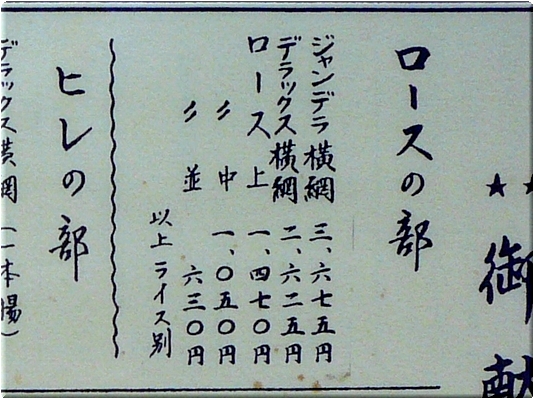 ★★
御献
ロースの部
ジャンデラ横綱 三、六七五円
デラックス横綱 二、六二五円
ロース上 一、四七〇円
〃 中 一、〇五〇円
〃 並 六三〇円
以上ライス別
ヒレの部
デラックス横綱(一本揚)